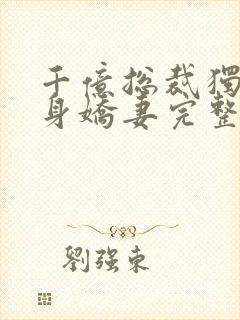 千億總裁獨
身嬌妻完整
劉强東